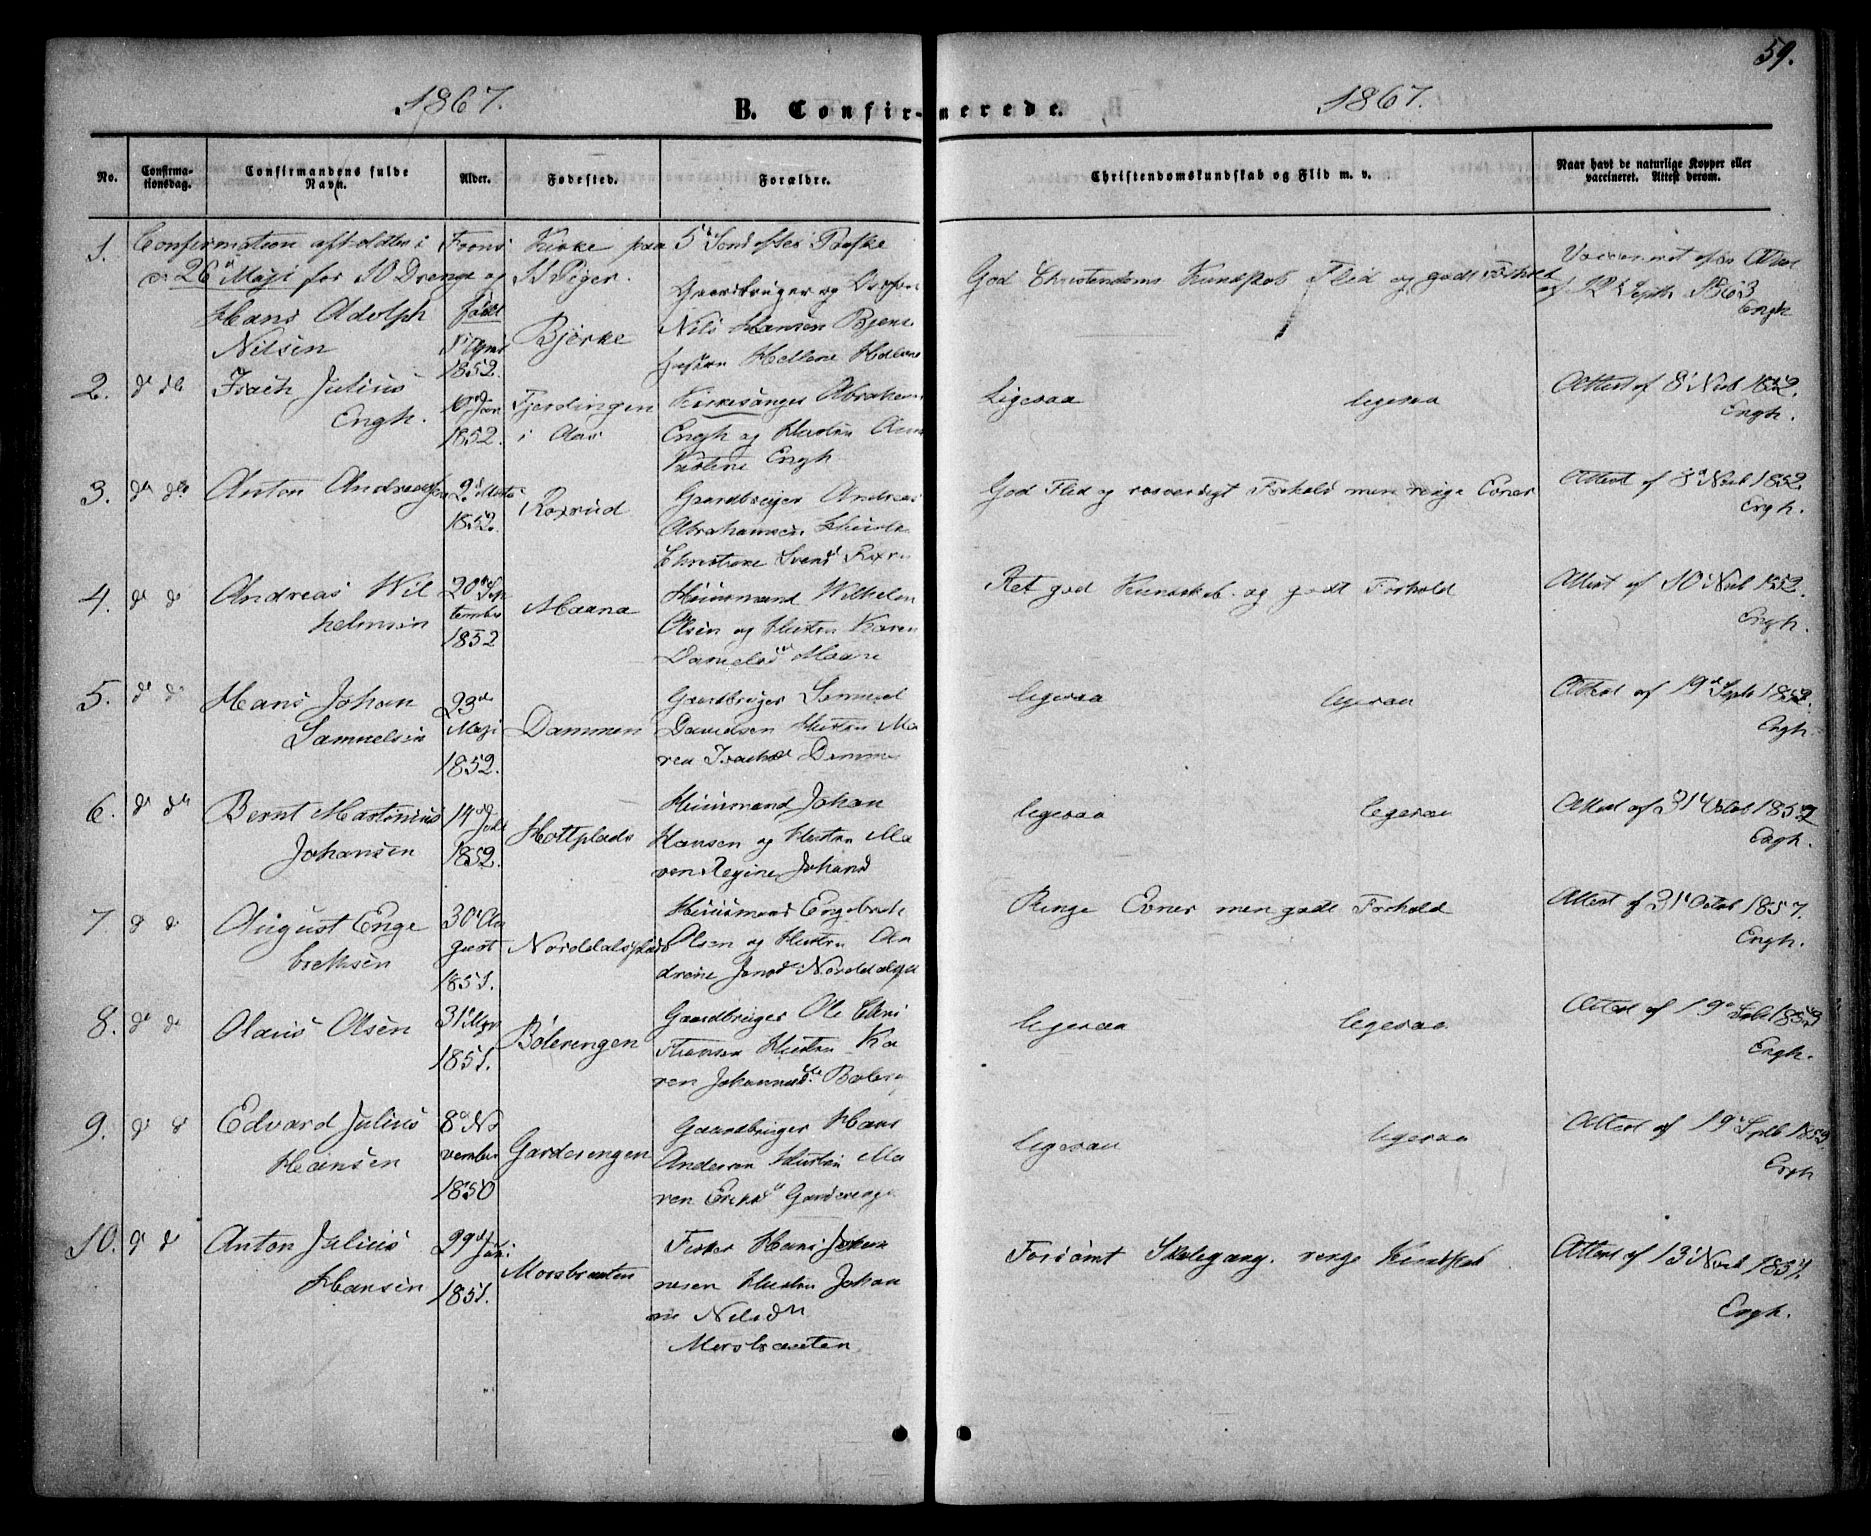 59.
1867.
B. Confir-merede.
1867.
No.
Confirma-
tionsdag.
Confirmandens fulde
Navn.
Alder.
Fødested.
Forældre.
Christendomskundskab og Flid m. v.
Naar havt de naturlige Kopper eller
vaccineret. Attest derom.
1. Confirmation afholdtes i Frons Kirke paa 5t Sond efter Paaske
26d Maji for 10 Drenge og 11 Piger.
Hans Adolph
Nilsen
født
1852.
Bjerke
Gaardbruger og
Nils Hansen
Hellene
God Christendoms Kundskab Flid og godt Forhold
12t Septb 1863
Engh
2. do do
Isach Julius
Engh.
10d Jan
1852.
Fjerdingen
i Aas
Kirkesanger Abraham
Engh og Hustru
Engh
Ligesaa ligesaa
Attest af 8d Novb 1852.
Engh.
3. do do
Anton Andreassen
2d
1852.
Roxrud
Gaardbruger Andreas
Abrahamsen Hustru
Christine Svensd
God Flid og rosværdigt Forhold men ringe Evner
Attest af 8d Novb 1852.
Engh.
4. do do
Andreas Wil
helmsen
20d Sep
tember
1852
Maana
Huusmand Wilhelm
Olsen og Hustru Karen
Danielsd
Ret god Kundskab og godt Forhold
Attest af 10 Novb 1852.
Engh.
5. do do
Hans Johan
Samuelsen
23d
Maji
1852.
Dammen
Gaardbruger Samuel
Danielsen Hustru Ma
ren Isachsd
ligesaa ligesaa
Attest af 19d Septb 1852.
Engh.
6. do do
Bernt Martinius
Johansen
14d
1852.
Huusmand Johan
Hansen og Hustru Ma
ren Regine Johansd
ligesaa ligesaa
Attest af 31 Octob 1852
Engh.
7 do do
August Enge
bretsen
30d Au
gust
1851.
Norddalsplads
Huusmand Engebret
Olsen og Hustru An
drine Jensd
Ringe Evner men godt Forhold
Attest af 31d Octob 1857.
Engh.
8. do do
Olaus Olsen
31d
1851.
Bølerengen
Gaardbruger Ole
Hustru Ka
ren Johannesd
ligesaa ligesaa
Attest af 19d
Engh.
9. do do
Edvard Julius
Hansen
8d No
vember
1850
Garderengen
Gaardbruger Hans
Andersen Hustru Ma
ren Eriksd Garderenge
ligesaa ligesaa
Attest af 19d Septb
Engh
10. do do
Anton Julius
Hansen
29d
1851.
Morsbraaten
Fisker Hans Johan
nesen Hustru Johan
ne Nilsdtr
Morsbraaten
Forsömt Skolegang. ringe Kundskab
Attest af 13d Novb
Engh.